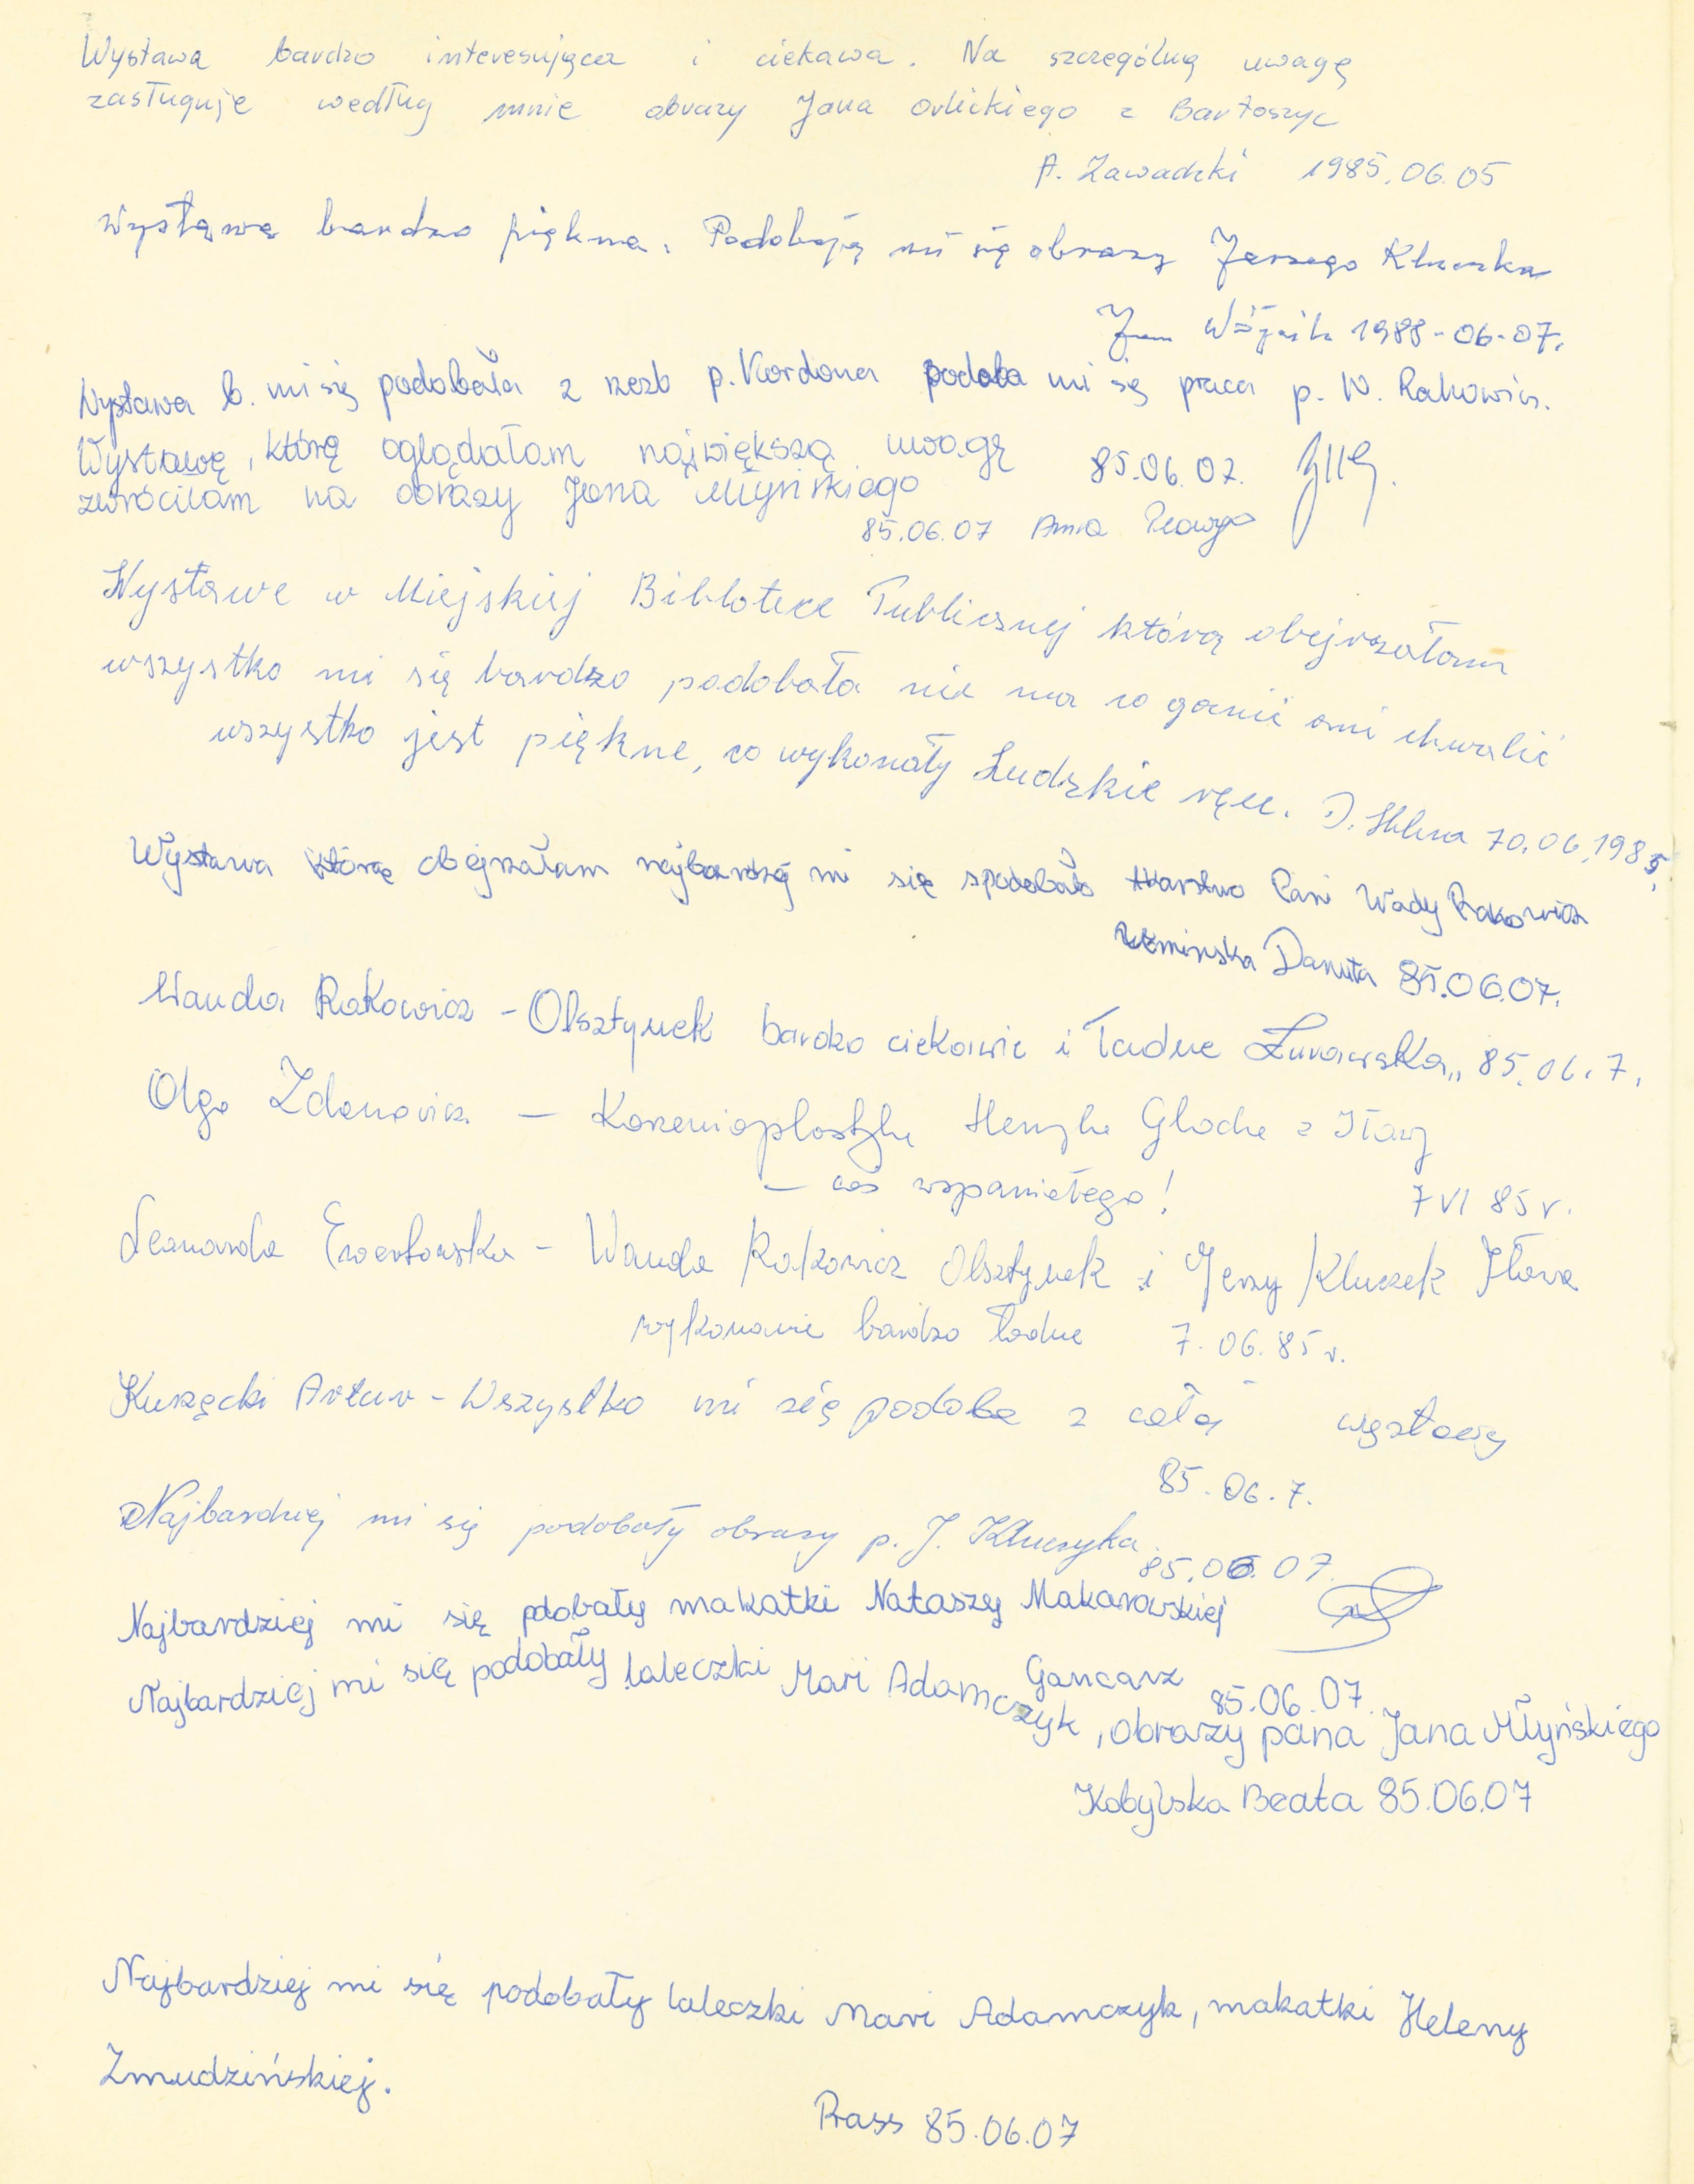 Wystawa bardzo interesująca i ciekawa. Na szczególną uwagę
zasługuje według mnie obrazy Jana Orlickiego z Bartoszyc
A. Zawadzki 1985.06.05
Wystawa bardzo piękna. Podobają mi się obrazy Jerzego Kluczka
Jan 1988-06-07.
Wystawa b. mi się podobała z rzeźb p. Kordona podoba mi się praca p. W. Rakowicz.
85.06.07.
Wystawę, którą oglądałam największą uwagę
zwróciłam na obrazy Jana Młyńskiego
85.06.07 Anna
Wystawe w Miejskiej Bibliotece Publicznej którą obejrzałam
wszystko mi się bardzo podobała nie ma co ganić ani chwalić
wszystko jest piękne, co wykonały Ludzkie ręce. D. 10.06.1985.
Wystawa którą obejrzałam najbardziej mi się spodobało tkarstwo Pani Wady Rakowicz
Danuta 85.06.07.
Wanda Rakowicz - Olsztynek bardzo ciekawie i ładne Żurawska,, 85.06.7.
Olga Zdanowicz - Korzenioplastyka Henryka Glocha z Iławy
- coś wspaniałego! 7 VI 85 r.
Leonarda Ewertowska - Wanda Rakowicz Olsztynek i Jerzy Kluczek Iława
wykonanie bardzo ładne 7.06.85 r.
Kurzęcki Artur - Wszystko mi się podoba z całą wystawy
85.06.7.
Najbardziej mi się podobały obrazy p. J. Kluczyka
85.06.07.
Najbardziej mi się pdobały makatki Nataszy Makarowskiej
Gancarz 85.06.07.
Najbardziej mi się podobały laleczki Mari Adamczyk, obrazy pana Jana Młyńskiego
Kobylska Beata 85.06.07
Najbardziej mi się podobały laleczki Mari Adamczyk, makatki Heleny
Zmudzińskiej.
Prass 85.06.07